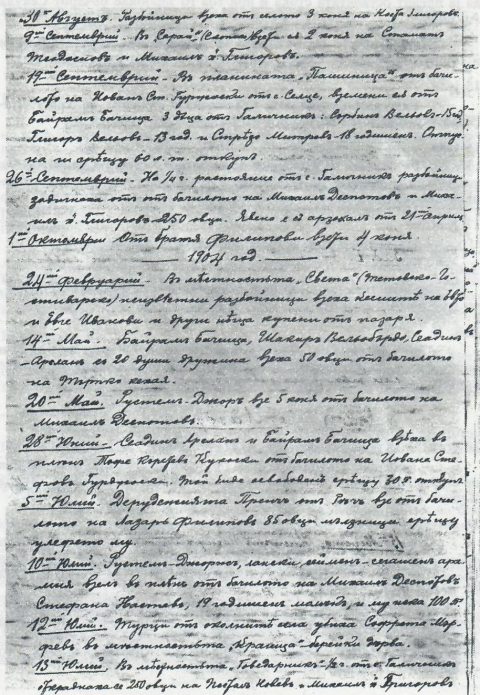 30й Августъ. Разбойници взеха отъ селото 3 коня на Коста Глигоровъ.
9й Септемврий - Въ „Сарай" взеха се 2 коня на Стаматъ
Теодосиовъ и Михаилъ х. Глигоровъ.
19й Септемврий - Въ планината „Пашиница" отъ бачи-
лото на Иованъ Ст. Гуржоски отъ с. Селце, вземени са отъ
Байрамъ Бачица 3 деца отъ Галичникъ: Сорбинъ Велйовъ - 15 год
Глигоръ Велйовъ - 13 год. и Стрезо Митревъ - 18 годишенъ. Отпу-
на ги срѣщу 60 л. т. откупъ
26й Септемврий - На 1/4 г. растояние отъ с. Галичникъ разбойни-
задигнаха отъ бачилото на Михаилъ Деспотовъ и Миха-
илъ х. Глигоровъ - 250 овци. Явено е съ арзохалъ отъ 21 Априлъ
1ий Октомврий Отъ братя Филипови взеха 4 коня
1904 год.
24ий Февруарий - Въ мѣстностьта „Света" (Тетовско-Го-
стиварско) неизвестни разбойници взеха на
и Ивче Иванови и други нѣща купени отъ пазаря.
14ий Май. Байрамъ Бачица, Шакиръ Вельобърдо, Сеадинъ
Арсланъ съ 20 души дружина взеха 50 овци отъ бачилото
на Търпко кехая.
20ий Май. Рустемъ - Джоръ взе 5 коня отъ бачилото на
Михаилъ Деспотовъ.
28ий Юний - Сеадинъ Арсланъ и Байрамъ Бачица взеха въ
пленъ Тофе отъ бачилото на Иована Сте-
фовъ Гурджоски. Той биде освободенъ срѣщу 30 л. откупъ
5ий Юлий - Дерудженията Пренгъ отъ взе отъ бачи-
лото на Лазаръ Филиповъ 85 овци млязници срѣщу
улефето му.
10ий Юлий. Рустемъ - Джоръ, сейменъ - сегашенъ ара-
мия взелъ въ плѣнъ отъ бачилото на Михаилъ Деспотовъ
Стефана Настовъ, 19 годишенъ момъкъ, и му иска 100 л.
12ий Юлий. Турци отъ околнитѣ села убиха Софрота Мар-
февъ въ мѣстностьта „Кралица" - берейки дърва.
13ий Юлий. Въ мѣстностьта „Говедарникъ" - 1/2 г. отъ с. Галичникъ
откраднаха се 250 овци на Михаилъ х. Глигоровъ